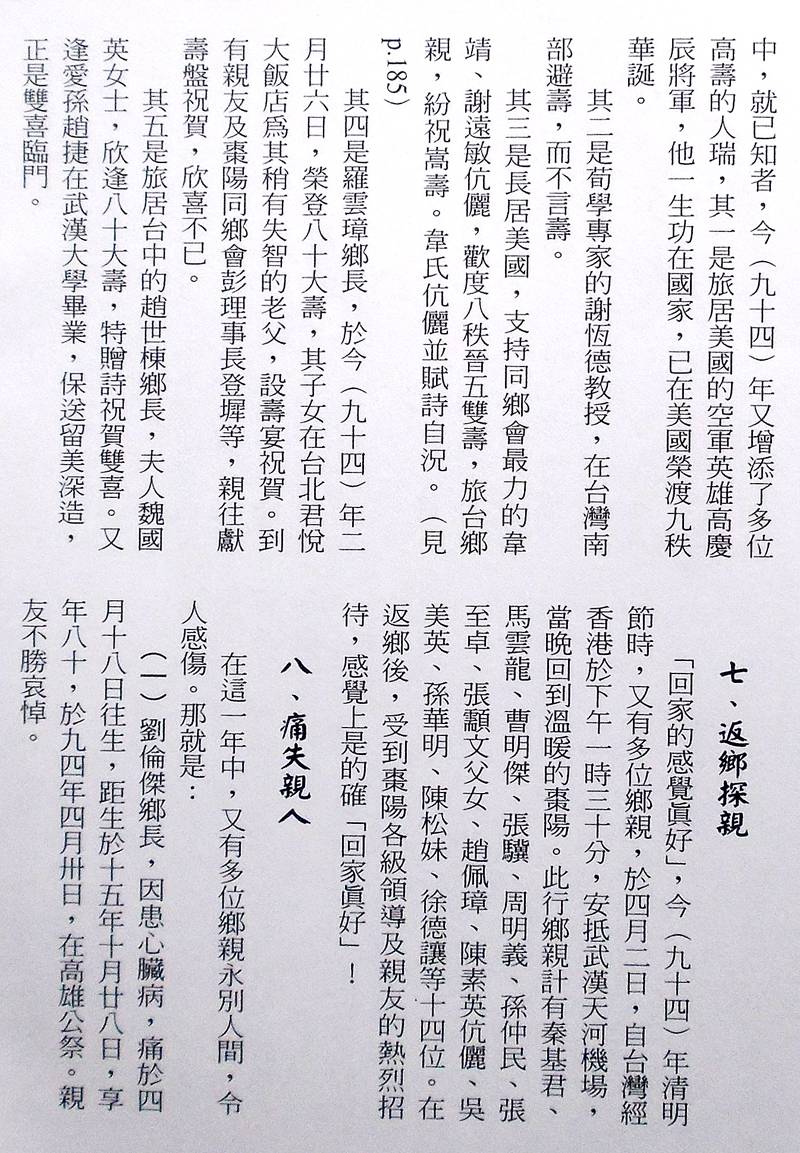 中，就已知者，今（九十四）年又增添了多位
高壽的人瑞，其一是旅居美國的空軍英雄高慶
辰將軍，他一生功在國家，已在美國榮渡九秩
華誕。
其二是荀學專家的謝恆德教授，在台灣南
部避壽，而不言壽。
其三是長居美國，支持同鄉會最力的韋
靖、謝遠敏伉儷，歡度八秩晉五雙壽，旅台鄉
親，紛祝嵩壽。韋氏伉儷並賦詩自況。（見
p.185）
其四是羅雲璋鄉長，於今（九十四）年二
月廿六日，榮登八十大壽，其子女在台北君悅
大飯店為其稍有失智的老父，設壽宴祝賀。到
有親友及棗陽同鄉會彭理事長登墀等，親往獻
壽盤祝賀，欣喜不已。
其五是旅居台中的趙世棟鄉長，夫人魏國
英女士，欣逢八十大壽，特贈詩祝賀雙喜。又
逢愛孫趙捷在武漢大學畢業，保送留美深造，
正是雙喜臨門。
七、返鄉探親
「回家的感覺眞好」，今（九十四）年清明
節時，又有多位鄉親，於四月二日，自台灣經
香港於下午一時三十分，安抵武漢天河機場，
當晚回到溫暖的棗陽。此行鄉親計有秦基君、
馬雲龍、曹明傑、張驥、周明義、孫仲民、張
至卓、張顬文父女、趙佩璋、陳素英伉儷、吳
美英、孫華明、陳松妹、徐德讓等十四位。在
返鄉後，受到棗陽各級領導及親友的熱烈招
待，感覺上是的確「回家眞好」！
八、痛失親人
在這一年中，又有多位鄉親永別人間，令
人感傷。那就是：
（一）劉倫傑鄉長，因患心臟病，痛於四
月十八日往生，距生於十五年十月廿八日，享
年八十，於九四年四月卅日，在高雄公祭。親
友不勝哀悼。